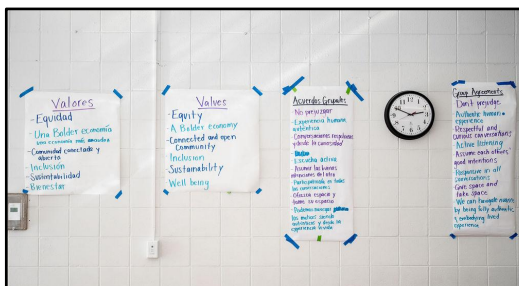 Valores
-Equidad
-Una Bolder economía
una economía más atrevida
-Comunidad conectada y
abierta
-Inclusión
-Sustentabilidad
Bienestar
Values
-Equity
-A Bolder economy
-Connected and open
Community
Inclusion
Sustainability
Well being
Acuerdos Grupales
No prejuzgar
Experiencia humana
auténtica
Conversaciones respetuosas
guiando la curiosidad
Escucha activa
Asumir las buenas
intenciones del otro
las conversaciones
Ofrezca espacio y
tome su espacio
los matices siendo
auténticos y desde la
experiencia vivida
Group Agreements
Don't prejudge
Authentic human
experience
Respectful and
curious conversations
Active listening
Assume each others'
good intentions
Responsive in all
conversations
Give space and
take space
We can navigate nuances
by being fully authentic
& embodying lived
experience